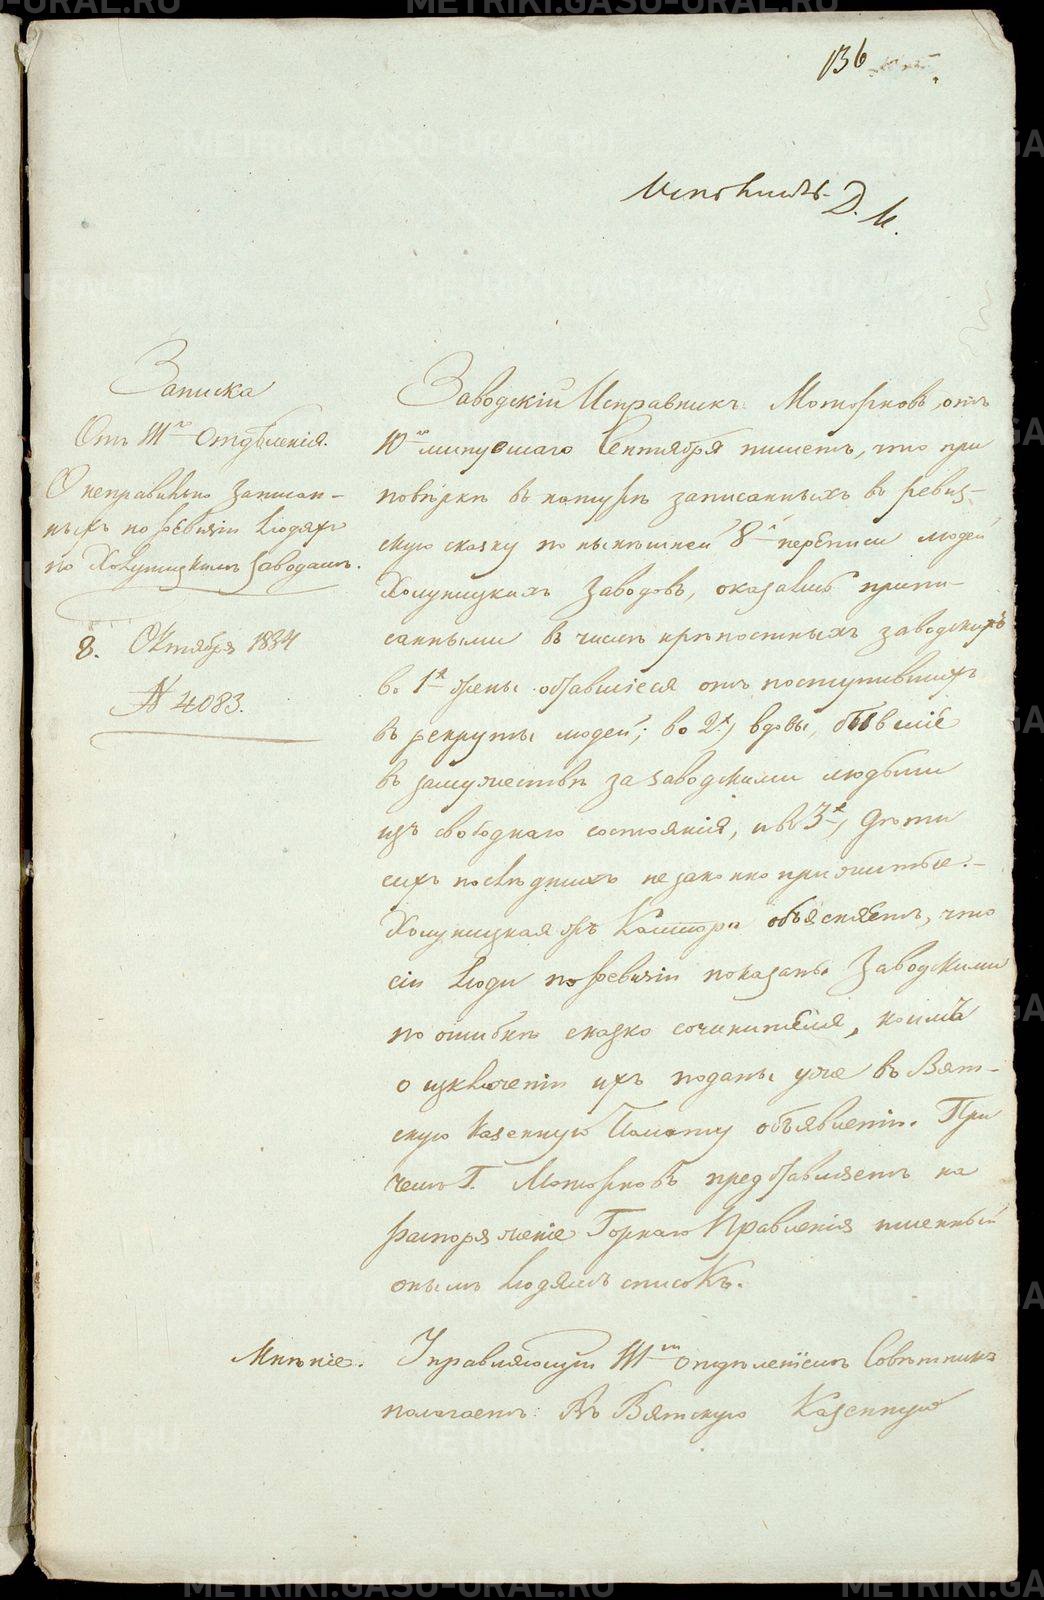 136
Исполнить Д. И.
Записка
Отъ III го Отдѣленія.
О неправильно записан-
ныхъ по ревизіи людяхъ
по Холуницкимъ заводамъ.
8. Октября 1834
№ 4083.
Заводскій Исправникъ Моторновъ, отъ
10го минувшаго Сентября пишетъ, что при
повѣркѣ въ натурѣ записанныхъ въ ревиз-
скую сказку по нынѣшней 8й переписи людей
Холуницкихъ заводовъ, оказались припи-
санными въ числѣ крѣпостныхъ заводскихъ
во 1х жены оставшіеся отъ поступившихъ
въ рекруты людей; во 2х, вдовы, бывшіе
въ замужествѣ за заводскими людьми
изъ свободнаго состоянія, и въ 3х, дѣти
сихъ послѣднихъ незаконно прижитые.-
Холуницкая Контора объясняетъ, что
сіи люди по ревизіи показаны заводскими
по ошибкѣ сказко сочинителя, коимъ
о изключеніи ихъ поданы уже въ Вят-
скую Казенную Палату объявленіи. При
чемъ Г. Моторновъ представляетъ на
распоряженіе Горнаго Правленія имянный
онымъ людямъ списокъ.
Мнѣніе. Управляющій III мъ отдѣленіемъ Совѣтникъ
полагаетъ: Въ Вятскую Казенную